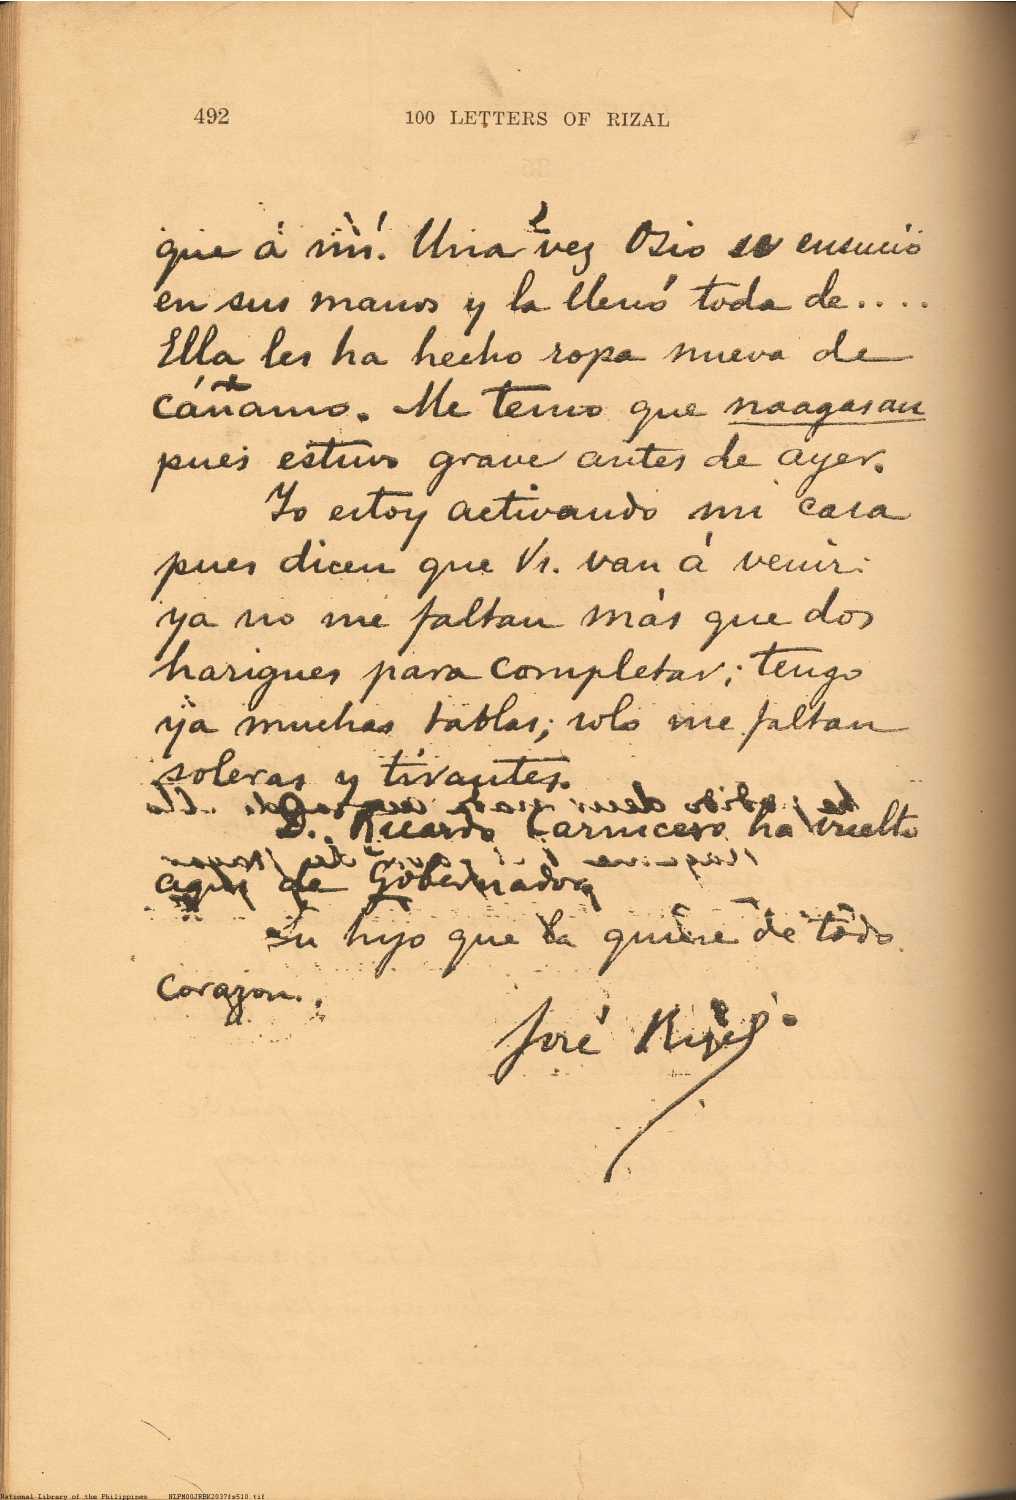 492 100 LETTERS OF RIZAL
que á mí. Una vez Osio se ensució
en sus manos y la llenó toda de....
Ella les ha hecho ropa nueva de
cáñamo. Me temo que naagasan
pues estuvo grave antes de ayer.
Yo estoy activando mi casa
pues dicen que Vs. van á venir:
ya no me faltan más que dos
harigues para completar; tengo
ya muchas tablas; solo me faltan
soleras y tirantes.
D. Ricardo Carnicero ha vuelto
aquí de Gobernador,
Su hijo que la quiere de todo
corazon.
José Rizal
National Library of the Philippines NLPM00JRBK2037fs510.tif